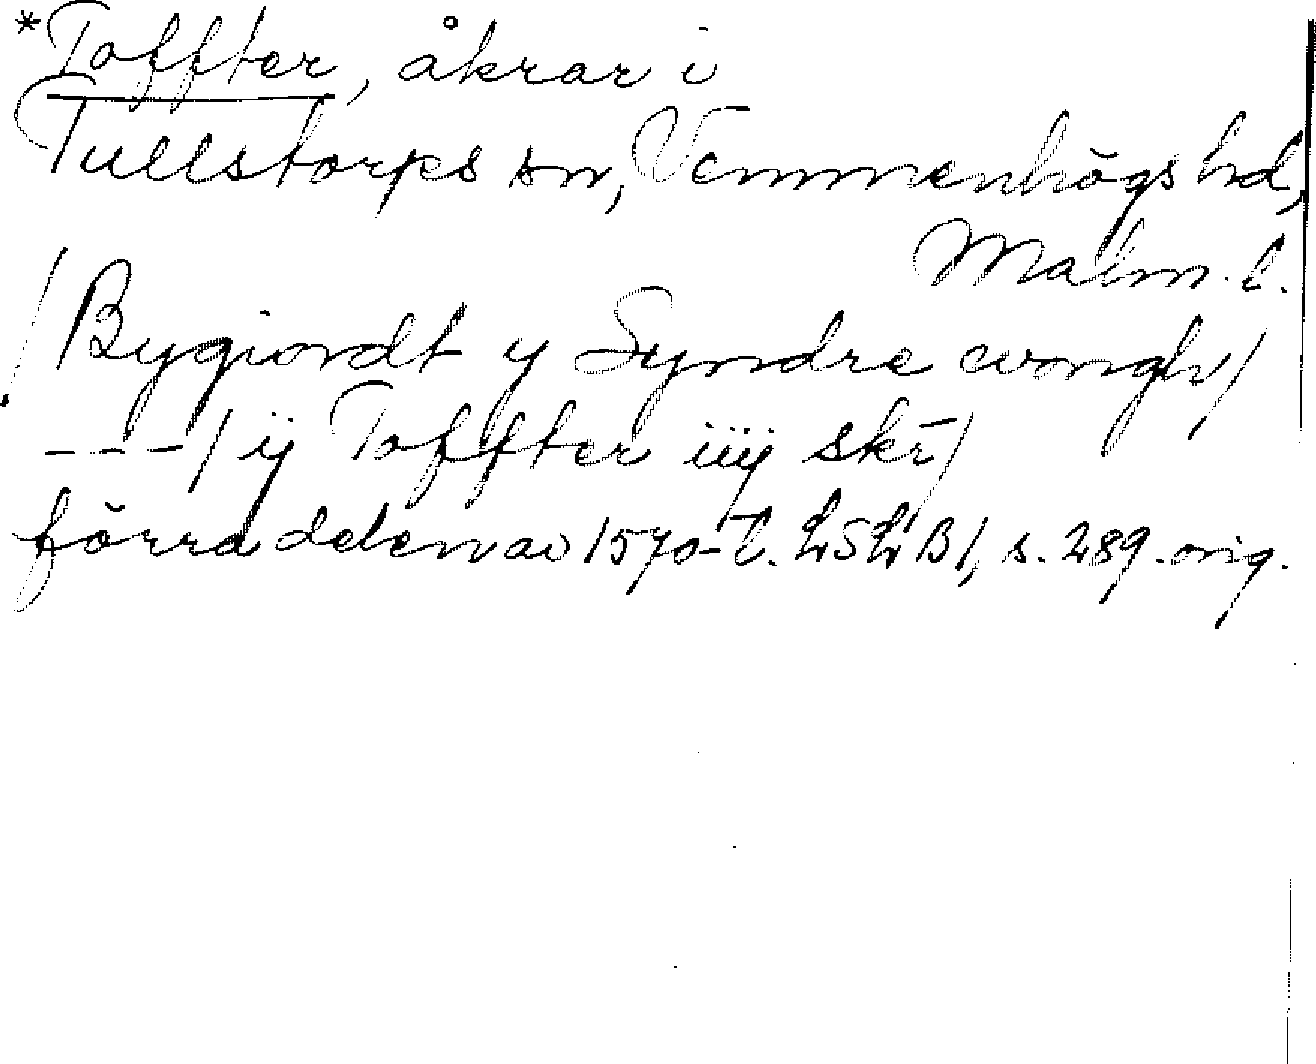 *Toffter, åkrar i
Tullstorps sn, Vemmenhögs hd,
Malm. l.
/Bygiordt y Syndre wongh/
---/ ij Toffter iiij skr̄/
förra delen av 1570-t. LSLB1, s. 289. orig.